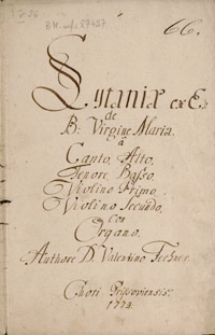 66.
Lytaniæ ex E♭
de
B: Virgine Maria.
à
Canto, Alto,
Tenore, Basso,
Violino Primo
Violino Secundo,
Con
Organo.
Authore D. Valentino
Chori
1724.